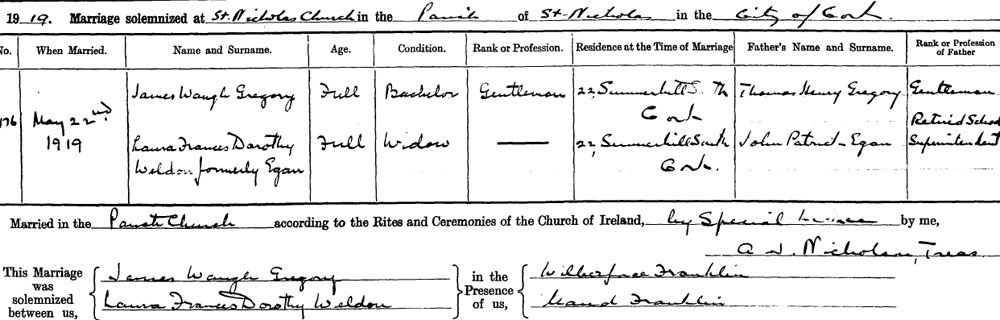 1919. Marriage solemnized at St. Nicholas Church in the Parish of St. Nicholas in the City of Cork.
No. When Married. Name and Surname. Age. Condition. Rank or Profession. Residence at the Time of Marriage Father's Name and Surname. Rank or Profession of Father
176 May 22nd 1919
James Waugh Gregory Full Bachelor Gentleman 22, Summerhill S. Th Cork Thomas Henry Gregory Gentleman
Laura Frances Dorothy Weldon formerly Egan Full Widow — 22, Summerhill South Cork. John Patrick Egan Retired School Superintendent
Married in the Parish Church according to the Rites and Ceremonies of the Church of Ireland, by Special Licence by me,
Nicholson, Treas
This Marriage was solemnized between us, James Waugh Gregory in the Presence of us, Wilberforce Franklin
Laura Frances Dorothy Weldon Maud Franklin